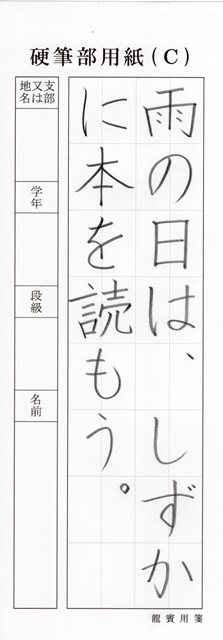 硬筆部用紙(C)
雨の日は、しずか
に本を読もう。
支部
又は
地名
学年
段級
名前
龍賓用箋